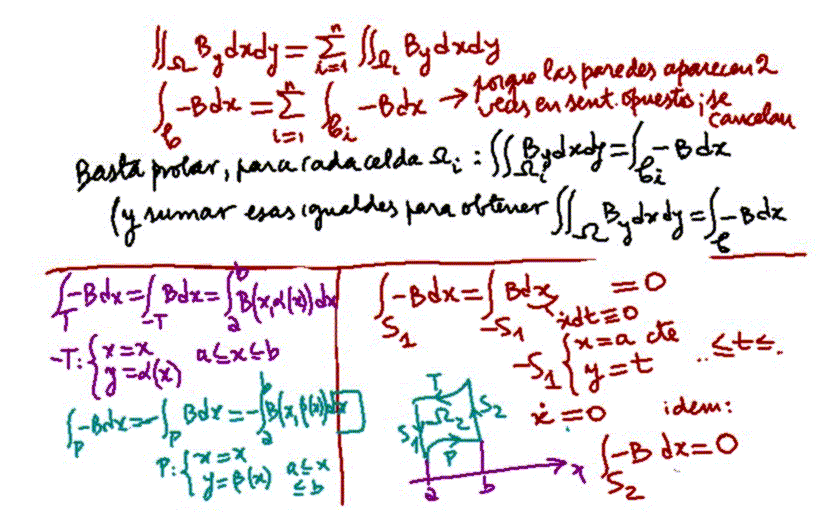 ∬_Ω B_y dxdy = Σ_{i=1}^{n} ∬_{Ω_i} B_y dxdy
∫_C -B dx = Σ_{i=1}^{n} ∫_{C_i} -B dx → porque las paredes aparecen 2
veces en sent. opuestos; se
cancelan
Basta probar, para cada celda Ω_i : ∬_{Ω_i} B_y dxdy = ∫_{C_i} -B dx
(y sumar esas igualdes para obtener ∬_Ω B_y dxdy = ∫_C -B dx
∫_T -B dx = ∫_{-T} B dx = ∫_a^b B(x, α(x)) dx
-T: { x = x
y = α(x) a ≤ x ≤ b
∫_P -B dx = -∫_P B dx = -∫_a^b B(x, β(x)) dx
P: { x = x
y = β(x) a ≤ x
≤ b
∫_{S_1} -B dx = ∫_{-S_1} B dx = 0
ẋ dt = 0
-S_1 { x = a cte
y = t .. ≤ t ≤ ..
ẋ = 0 idem:
∫_{S_2} -B dx = 0
T
S_1 Ω_2 S_2
P
a b x